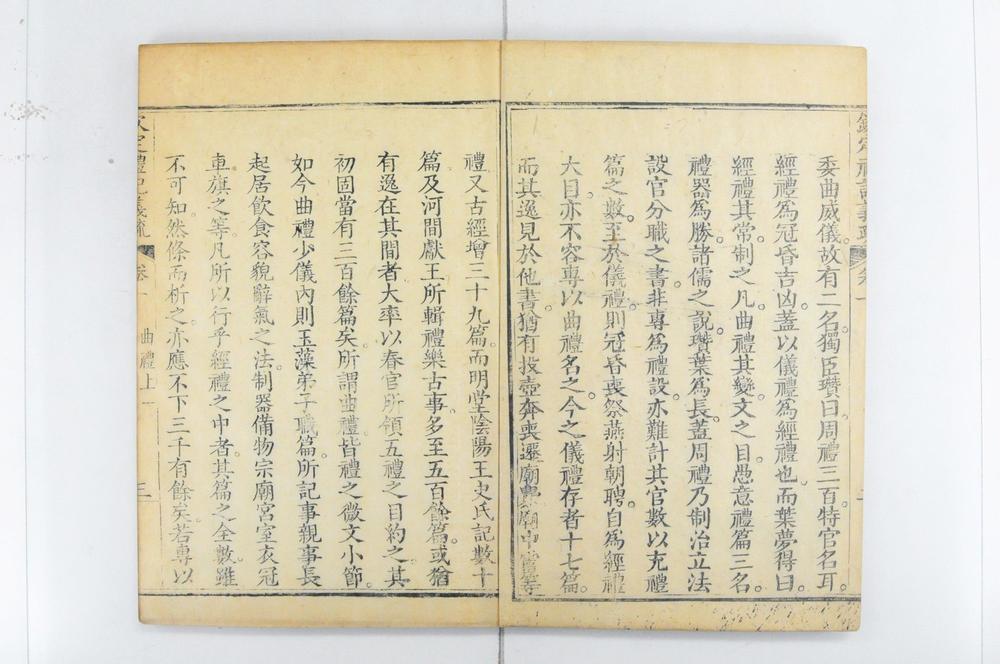 委曲威儀。故有二名。獨臣瓚曰。周禮三百。特官名耳。
經禮爲冠昏吉凶。蓋以儀禮爲經禮也。而葉夢得曰。
經禮其常制之凡。曲禮其變文之目。愚意禮篇三名。
禮器爲勝。諸儒之說。瓚葉爲長。蓋周禮乃制治立法
設官分職之書。非專爲禮設。亦難計其官數以充禮
篇之數。至於儀禮。則冠昏喪祭燕射朝聘。自爲經禮
大目。亦不容專以曲禮名之。今之儀禮存者十七篇。
而其逸見於他書。猶有投壺奔喪遷廟釁廟中霤等
禮又古經增三十九篇。而明堂陰陽王史氏記數十
篇及河間獻王所輯禮樂古事多至五百餘篇。或猶
有逸在其間者大率以春官所領五禮之目約之其
初固當有三百餘篇矣。所謂曲禮皆禮之微文小節。
如今曲禮少儀內則玉藻弟子職篇。所記事親事長
起居飲食容貌辭氣之法。制器備物宗廟宮室衣冠
車旗之等。凡所以行乎經禮之中者。其篇之全數雖
不可知。然條而析之。亦應不下三千有餘矣。若專以
欽定禮記義疏
卷一
曲禮上一
三